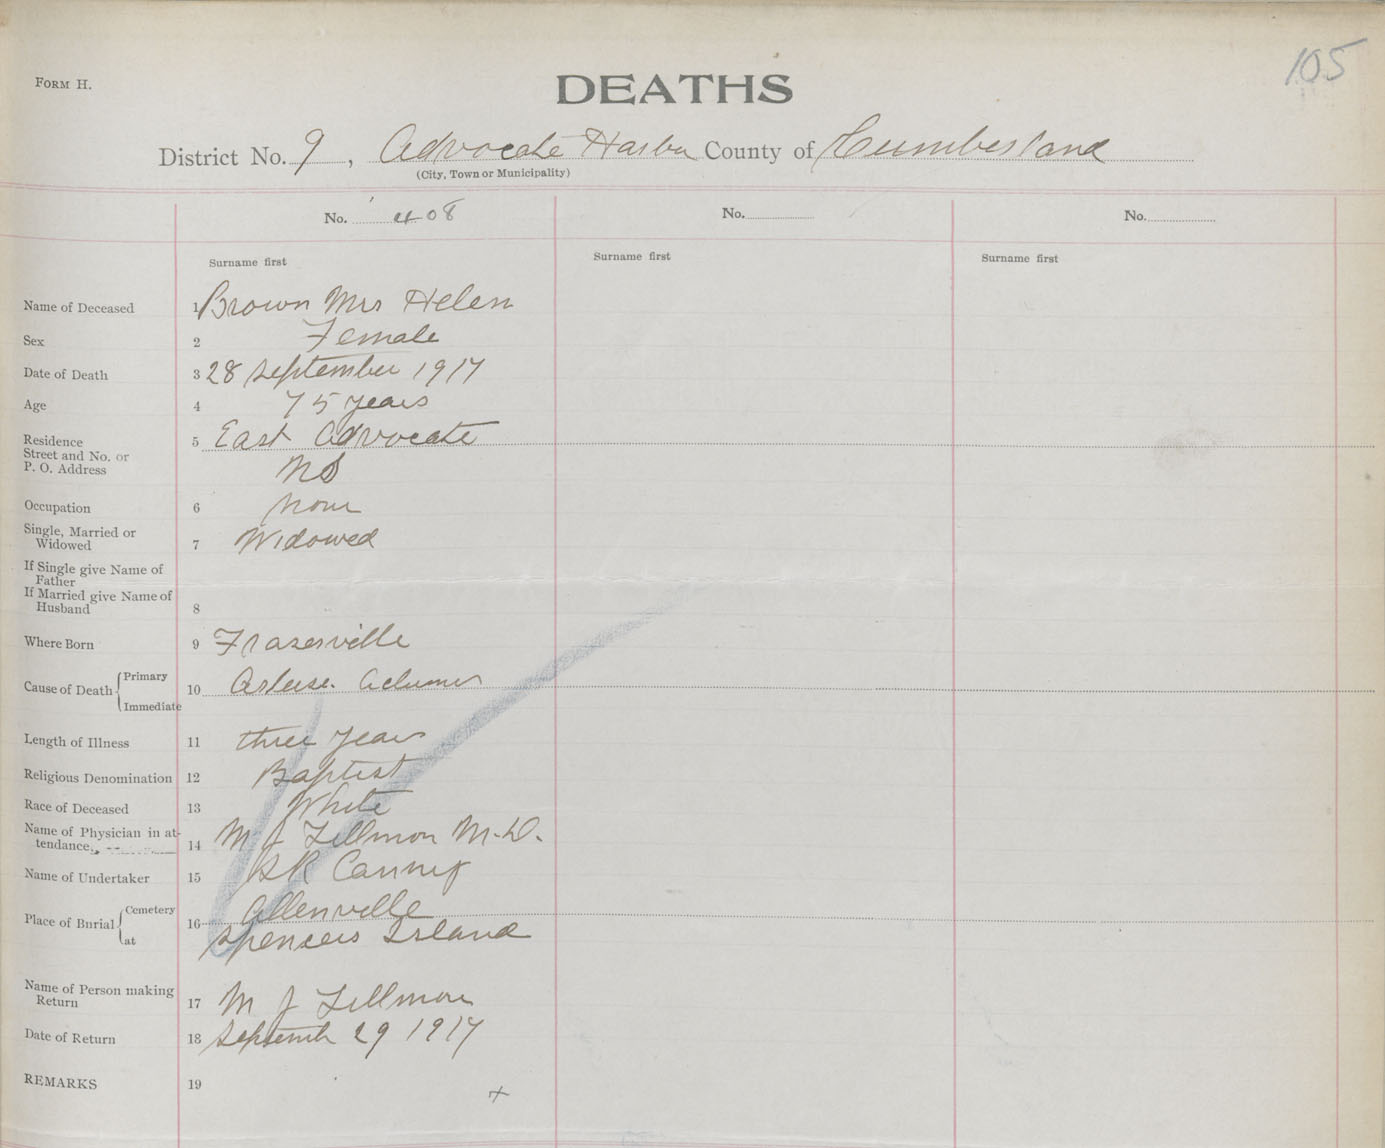 105
FORM H.
DEATHS
District No. 9, Advocate Harbor County of Cumberland
(City, Town or Municipality)
No. 408 No. No.
Surname first Surname first Surname first
Name of Deceased 1 Brown Mrs Helen
Sex 2 Female
Date of Death 3 28 September 1917
Age 4 75 years
Residence 5 East Advocate
Street and No. or
P. O. Address NS
Occupation 6 none
Single, Married or
Widowed 7 Widowed
If Single give Name of
Father
If Married give Name of
Husband 8
Where Born 9 Fraserville
Primary
Cause of Death 10
Immediate
Length of Illness 11 three years
Religious Denomination 12 Baptist
Race of Deceased 13 White
Name of Physician in at-
tendance 14 M J Fillmon M.D.
Name of Undertaker 15 SR Canning
Cemetery Allenville
Place of Burial 16
at Spencers Island
Name of Person making
Return 17 M J Fillmon
Date of Return 18 September 29 1917
REMARKS 19